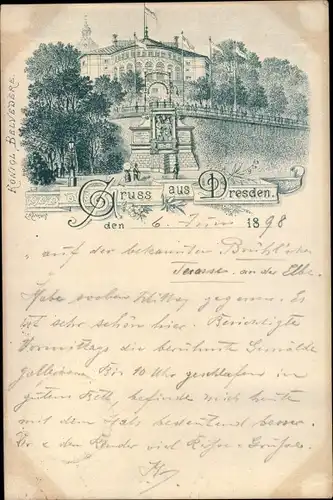 KÖNIGL. BELVEDERE.
Gruss aus Dresden.
den 6. Juni 1898
auf der bekannten Brühl'schen
Terasse an der Elbe.
Habe soeben Mittag gegessen. Es
ist sehr schön hier. Besichtigte
Vormittags die berühmte Gemälde
gallerie. Bis 10 Uhr geschlafen in
gutem Bett, befinde mich heute
mit dem Hals bedeutend besser.
Dir & den Kinder viel Grüsse